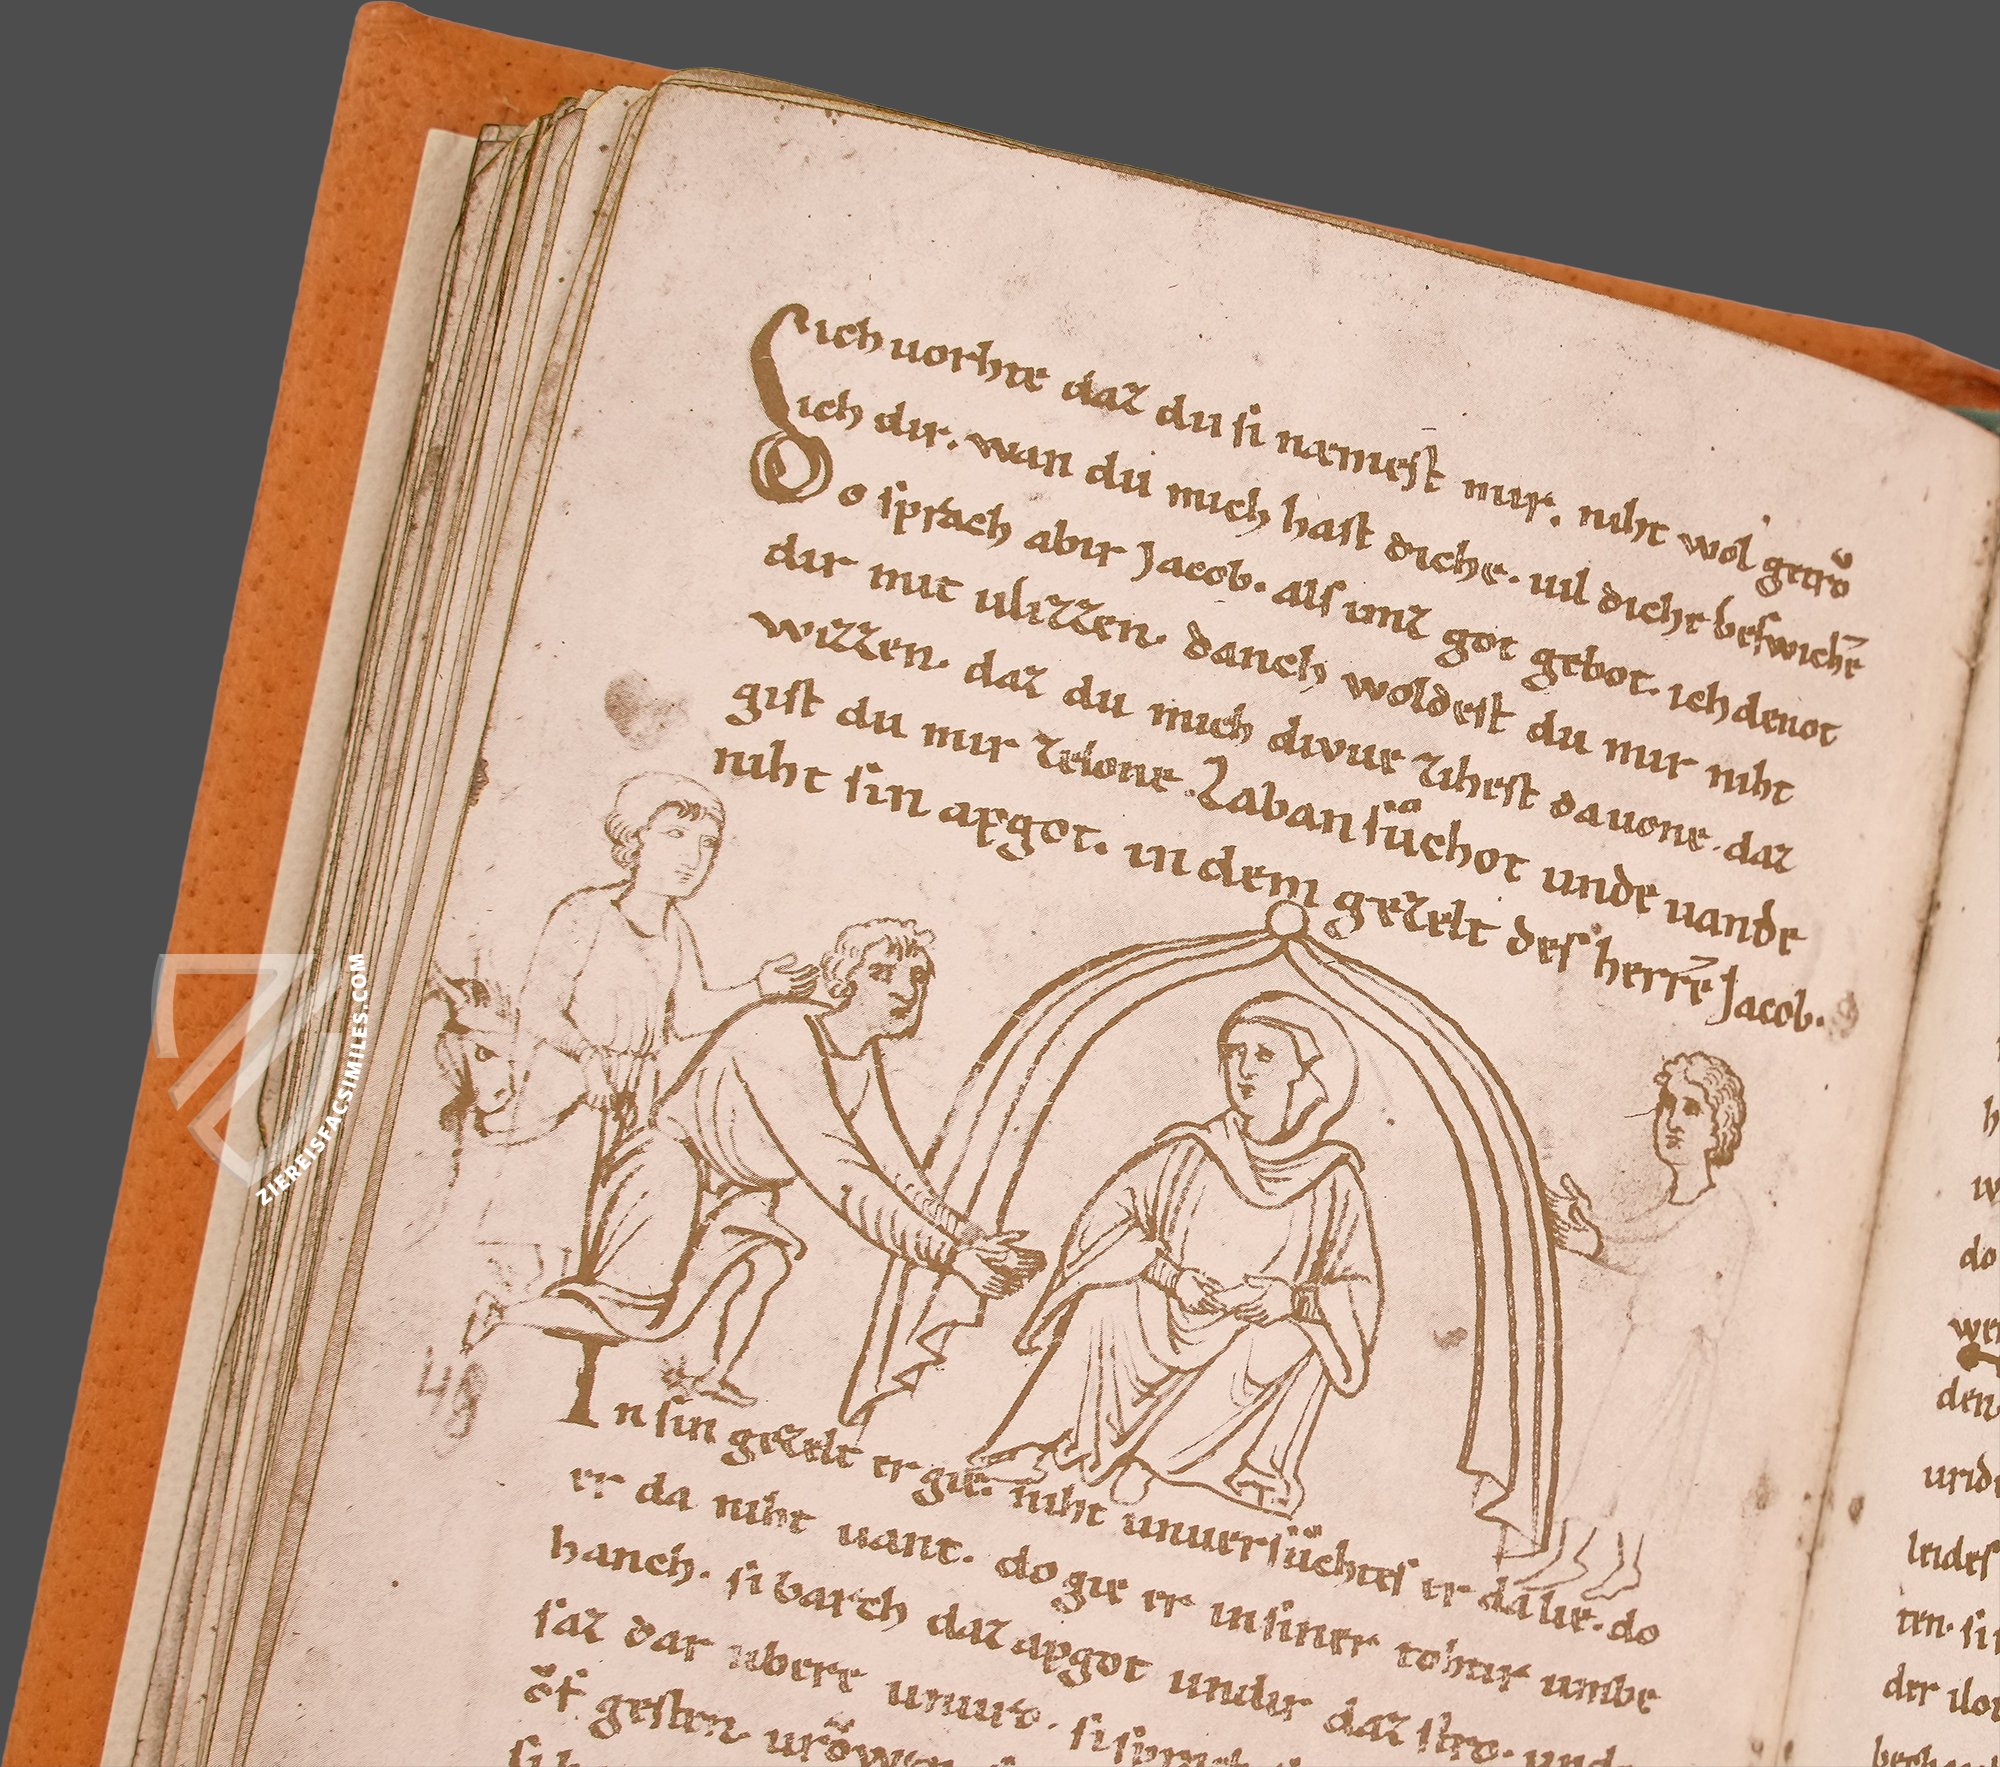 Sich uorhte daz du si næmest mir. niht wol getrŏ
ich dir. wan du mich hast diche. uil dichr beswichē
Do sprach abir Jacob. als imz got gebot. ich denot
dir mit ulizzen. danch woldest du mir niht
wizzen. daz du mich divue zihest dauone. daz
gist du mir zelone. Laban sůchot unde uande
niht sin apgot. in dem gezelt des herrē Jacob.
In sin gezelt er gie. niht unuersůchtes er da lie. do
er da niht uant. do gie er in siner tohtir umbe
hanch. si barch daz apgot undir daz stro. unde
saz dar ubere unuro. si sprach
ŏf gesten. urŏwen
niht
do
den
unde
der
49
ZIEREISFACSIMILES.COM